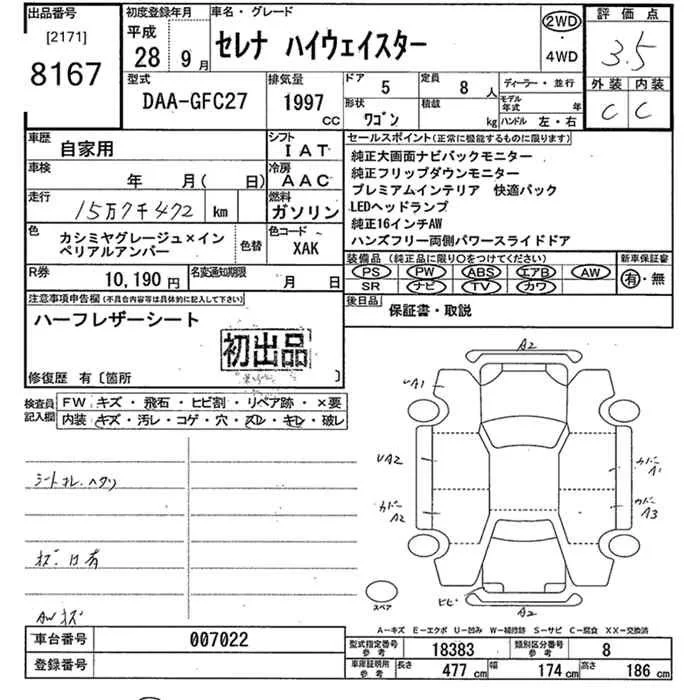 出品番号
[2171]
8167
初度登録年月
平成
28 9 月
車名・グレード
セレナ ハイウェイスター
2WD
・
4WD
評価点
3.5
外装 内装
C C
型式
DAA-GFC27
排気量
1997
CC
ドア 5
定員 8 人
形状 ワゴン
積載 kg
ディーラー・並行
モデル年式 年
ハンドル 左・右
車歴 自家用
シフト IAT
車検 年 月( 日)
冷房 AAC
走行 15万7千472 km
燃料 ガソリン
色 カシミヤグレージュ×イン
ペリアルアンバー
色替
色コード XAK
R券 10,190 円
名変通知期限 月 日
セールスポイント(正常に機能するものに限ります)
純正大画面ナビバックモニター
純正フリップダウンモニター
プレミアムインテリア 快適パック
LEDヘッドランプ
純正16インチAW
ハンズフリー両側パワースライドドア
装備品(純正品に限り○をつけてください)
PS PW ABS エアB AW
SR ナビ TV カワ
新車保証書
有・無
後日品 保証書・取説
注意事項申告欄(不具合内容等は具体的に記入して下さい)
ハーフレザーシート
初出品
修復歴 有〔箇所 〕
検査員
記入欄
FW キズ・飛石・ヒビ割・リペア跡・×要
内装 キズ・汚レ・コゲ・穴・スレ・キレ・破レ
AWキズ
A2
A1
A2
A1
A2
A3
A2
スペア
A−キズ E−エクボ U−凹み W−補修跡 S−サビ C−腐食 XX−交換済
車台番号 007022
登録番号
型式指定番号
参考
18383
類別区分番号
参考
8
車庫証明用
参考
長さ 477 cm
幅 174 cm
高さ 186 cm